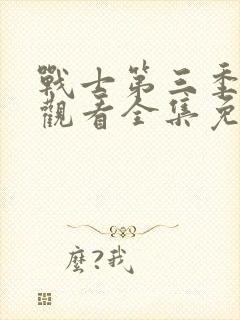 戰士第三季
觀看全集免
麼?我